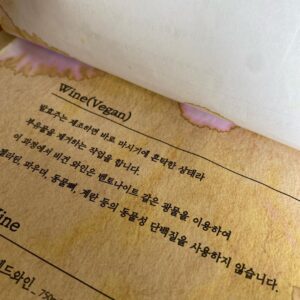 Wine(Vegan)
발효주는 제조하면 바로 마시기에 혼탁한 상태라
부유물을 제거하는 작업을 합니다.
이 과정에서 비건 와인은 벤토나이트 같은 광물을 이용하여
젤라틴, 카우며, 동물뼈, 계란 등의 동물성 단백질을 사용하지 않습니다.
ine
드와인_ 750m